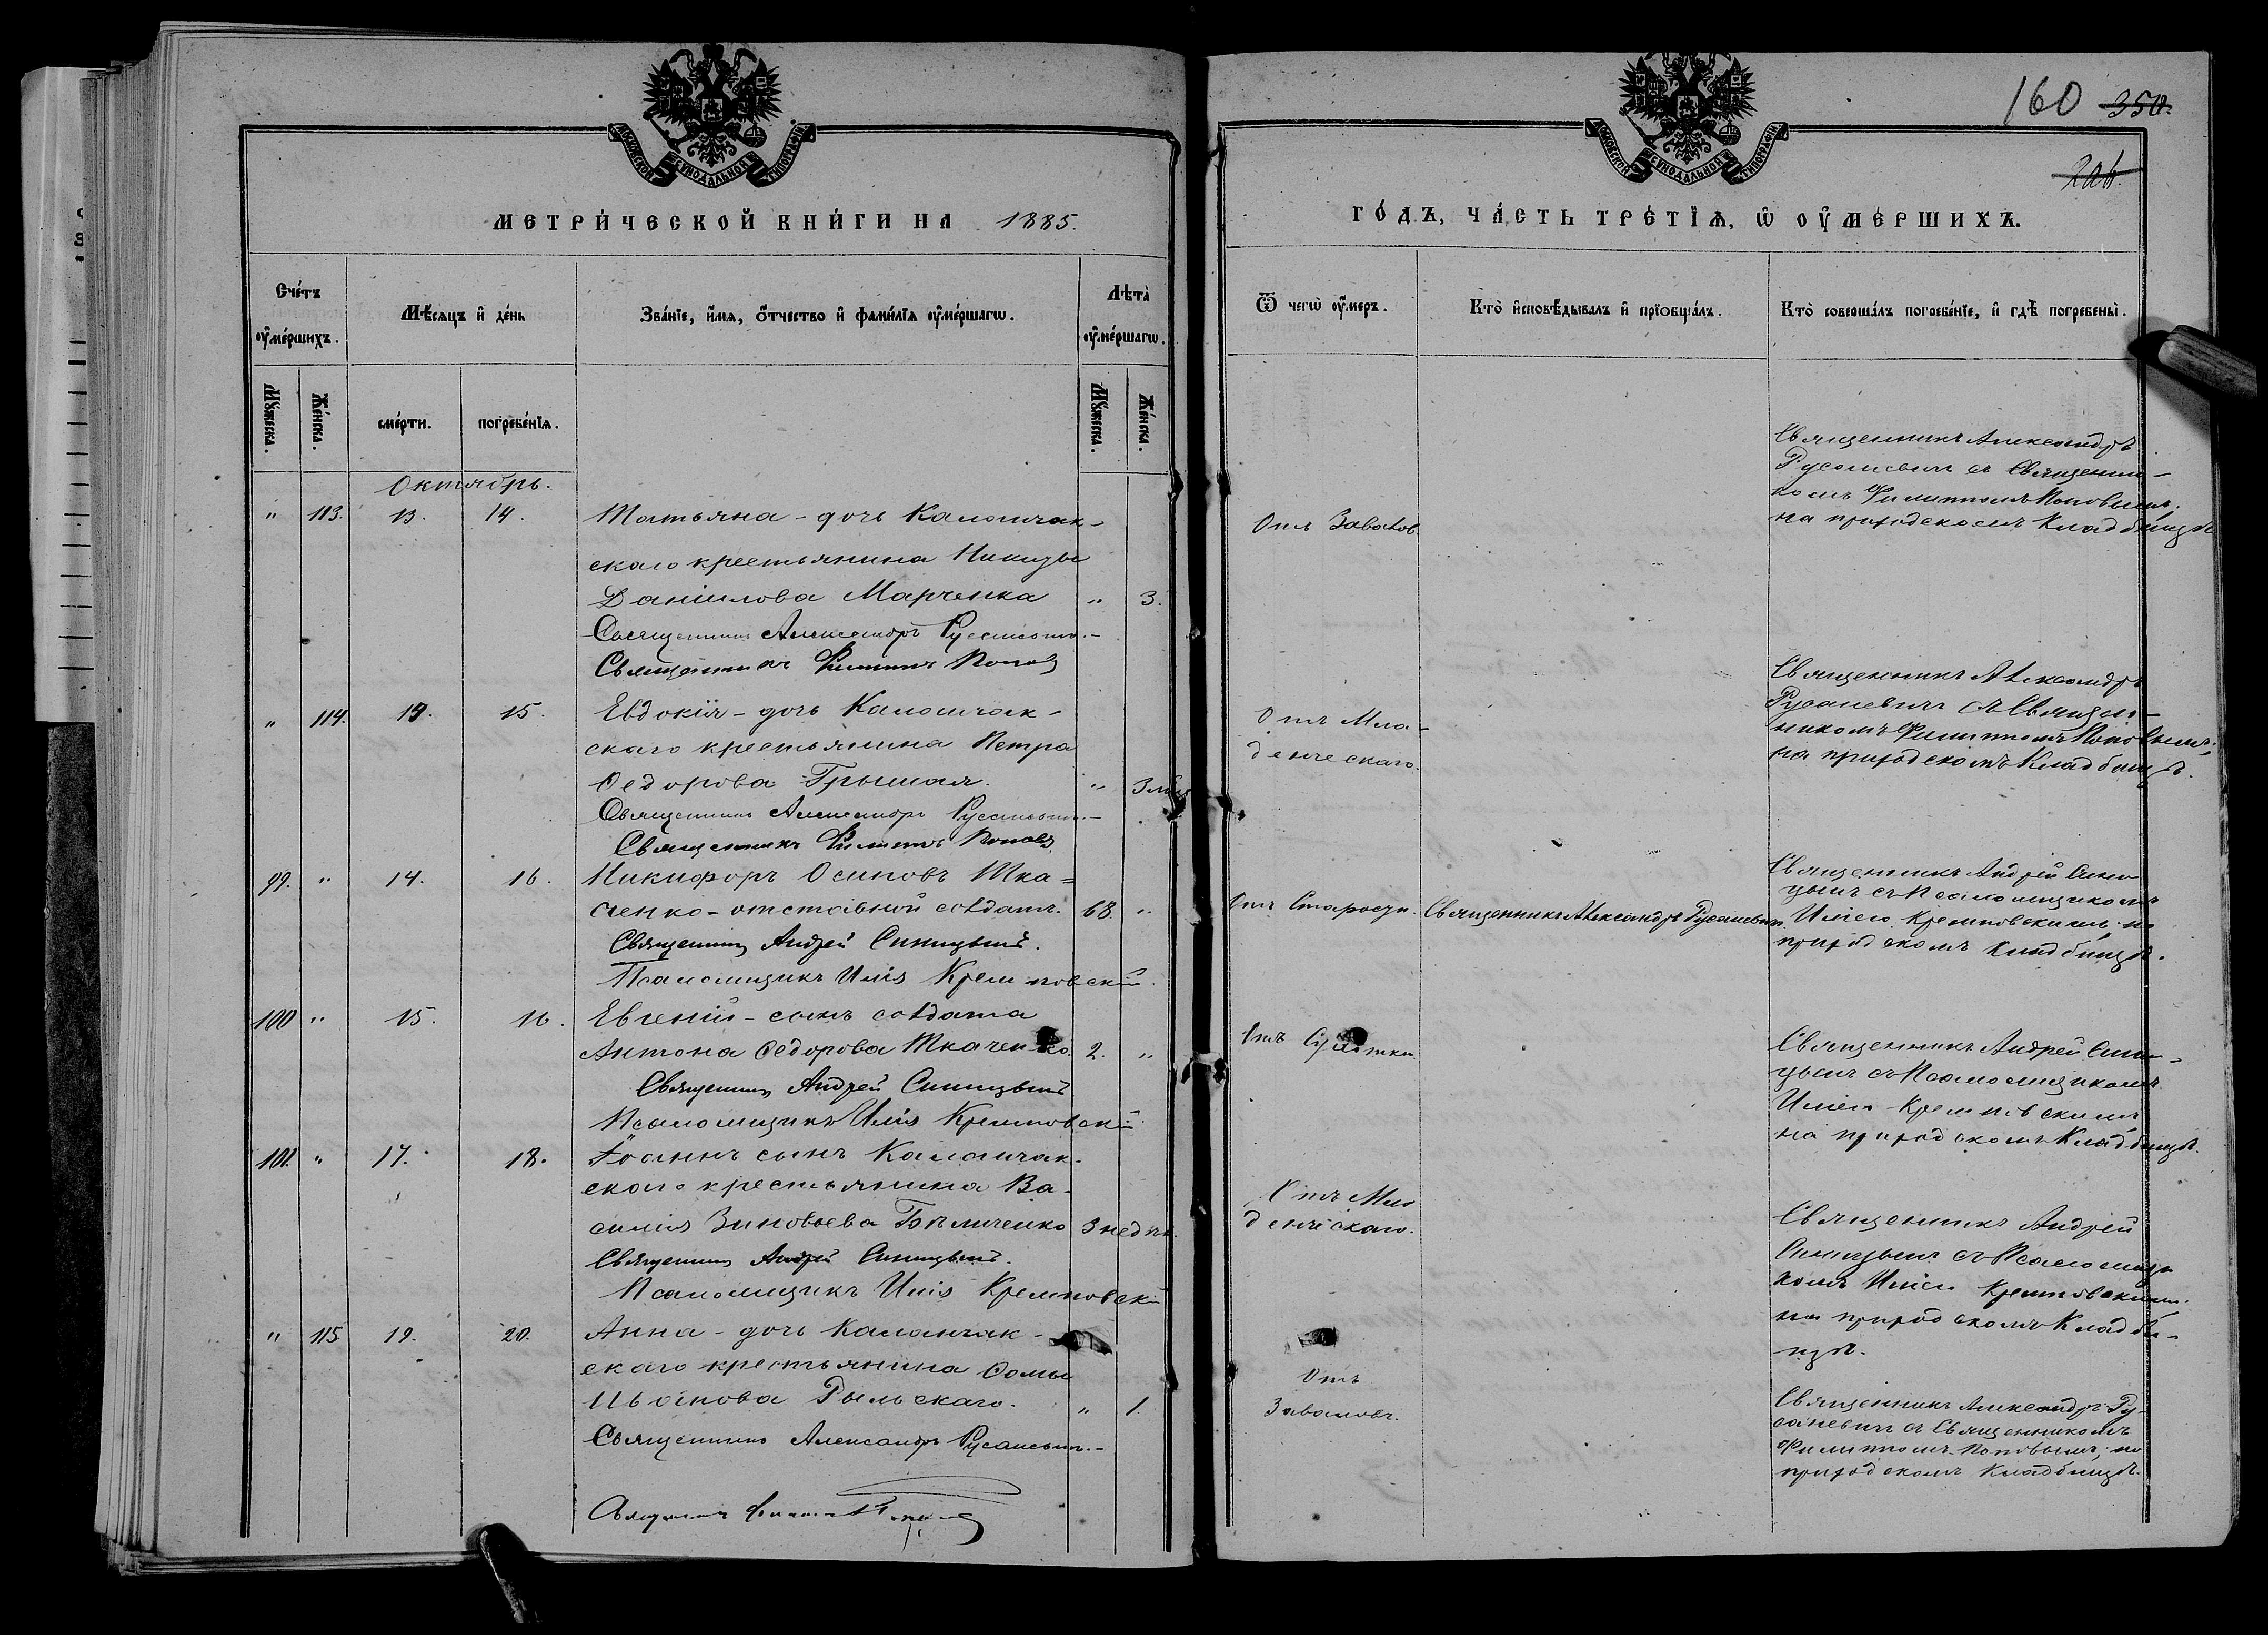 160 350.
206.
МОСКОВСКОЙ СѴНОДАЛЬНОЙ ТИПОГРАФІИ
МОСКОВСКОЙ СѴНОДАЛЬНОЙ ТИПОГРАФІИ
МЕТРИ́ЧЕСКОЙ КНИ́ГИ НА 1885.
ГО́ДЪ, ЧА́СТЬ ТРЕ́ТЇѦ, Ѡ҆ ОУ҆МЕ́РШИХЪ.
Сче́тъ оу҆ме́ршихъ.
Мѣ́сѧцъ и҆ де́нь
Зва́нїе, и҆́мѧ, ѻ҆́тчество и҆ фами́лїѧ оу҆ме́ршагѡ.
Лѣта̀ оу҆ме́ршагѡ.
Ѿ чегѡ̀ оу҆́меръ.
Кто̀ и҆сповѣ́дывалъ и҆ прїѡбща́лъ.
Кто̀ соверша́лъ погребе́нїе, и҆ гдѣ̀ погребены̀.
Мꙋ́жеска.
Же́нска.
сме́рти.
погребе́нїѧ.
Мꙋ́жеска.
Же́нска.
Октябрь.
" 113. 13. 14. Татьяна - дочь Каланчак-
скаго крестьянина Никиты
Даніилова Марченка " 3.
Священникъ Александръ Русаневичъ.
Священникъ Филиппъ Поповъ
Отъ Заваловъ.
Священникъ Александръ
Русаневичъ съ Священни-
комъ Филиппомъ Поповымъ.
на приходскомъ Кладбищѣ
" 114. 13. 15. Евдокія - дочь Каланчак-
скаго крестьянина Петра
Ѳедорова 
" 3 мѣс
Священникъ Александръ Русаневичъ.
Священникъ Филиппъ Поповъ.
Отъ Мла-
денческаго.
Священникъ Александръ
Русаневичъ съ Священ-
никомъ Филиппомъ Поповымъ.
на приходскомъ Кладбищѣ.
99. " 14. 16. Никифоръ Осиповъ Тка-
ченко - отставной солдатъ. 68. "
Священникъ Андрей Синицынъ.
Псаломщикъ Илія Кремповскій.
Отъ Старости. Священникъ Александръ Русаневичъ.
Священникъ Андрей Сини-
цынъ съ Псаломщикомъ
Иліею Кремповскимъ на
приходскомъ Кладбищѣ.
100 " 15. 16. Евгеній - сынъ солдата
Антона Ѳедорова Ткаченко. 2. "
Священникъ Андрей Синицынъ.
Псаломщикъ Илія Кремповскій
Отъ Сухотки.
Священникъ Андрей Сини-
цынъ съ Псаломщикомъ
Иліею Кремповскимъ
на приходскомъ Кладбищѣ.
101. " 17. 18. Іоаннъ сынъ Каланчак-
скаго крестьянина Ва-
силія Зиновьева Бѣличенко 3 недѣл.
Священникъ Андрей Синицынъ.
Псаломщикъ Илія Кремповскій
Отъ Мла
денческаго.
Священникъ Андрей
Синицынъ съ Псаломщи
комъ Иліею Кремповскимъ.
на приходскомъ Кладби-
щѣ.
" 115 19. 20. Анна - дочь Каланчак-
скаго крестьянина Ѳомы
Иванова Рыльскаго. " 1.
Священникъ Александръ Русаневичъ.
Священникъ Филиппъ Поповъ
Отъ
Заваловъ.
Священникъ Александръ Ру-
саневичъ съ Священникомъ
Филиппомъ Поповымъ на
приходскомъ Кладбищѣ.